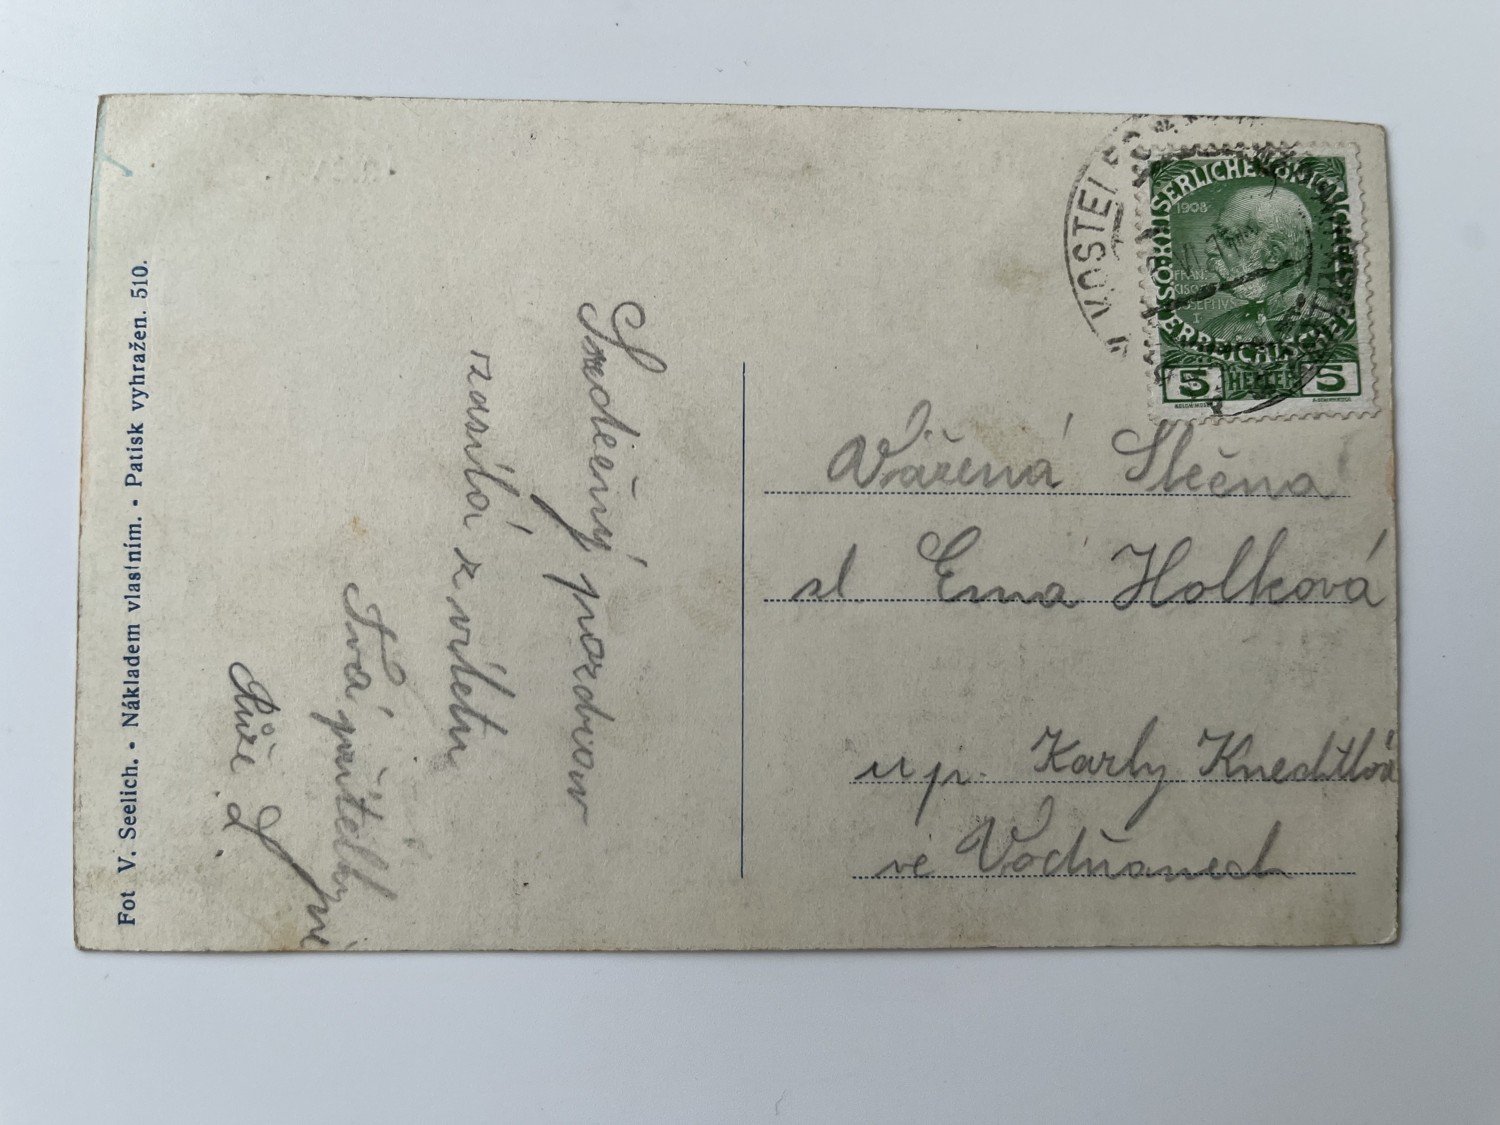 Fot V. Seelich. • Nákladem vlastním. • Patisk vyhražen. 510.
Srdečný pozdrav
zasílá z výletu
Tvá přítelkyně
Růže J
KOSTEL
KAISERLICHE KÖNIGLICHE
ÖSTERREICHISCHE
1908
FRAN
CISC
JOSEPHVS
I
5 HELLER 5
Vážená Slečna
sl Ema Holková
u p. Karly Knedtlová
ve Vodňanech